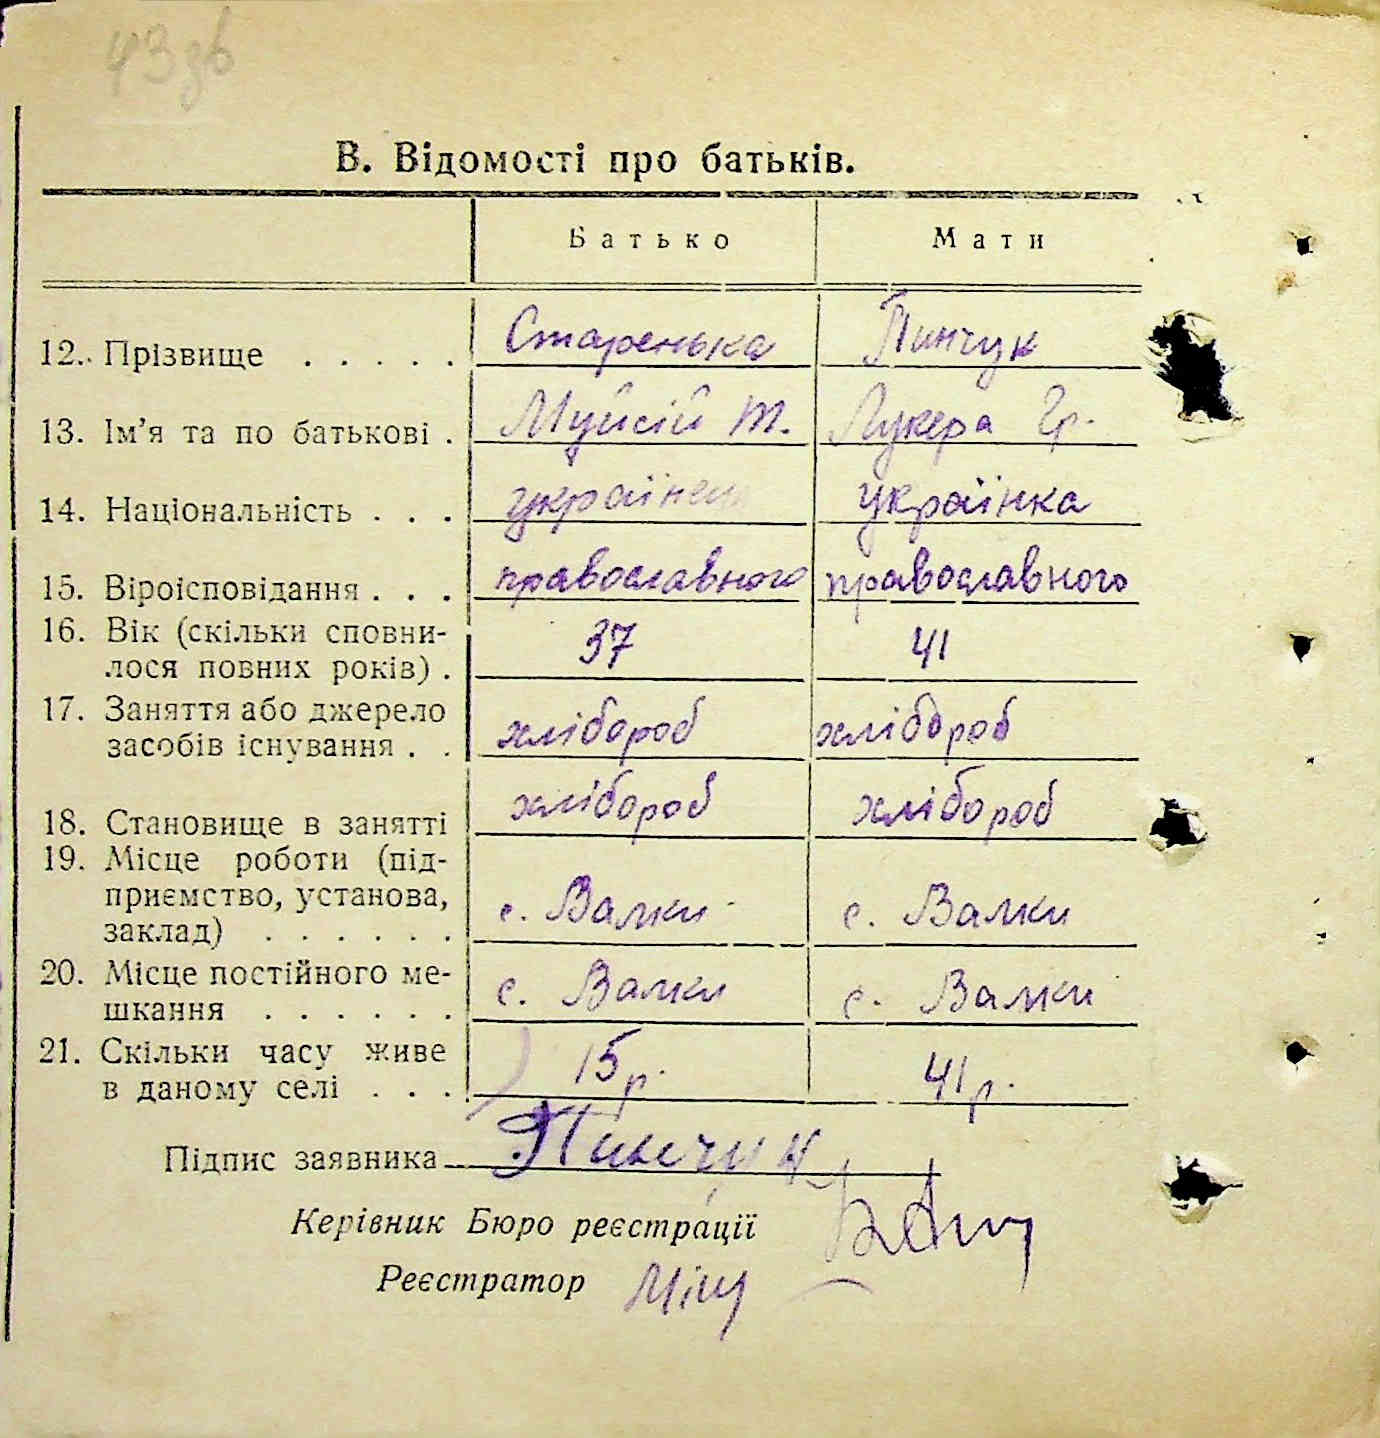 43 зв
В. Відомості про батьків.
Батько Мати
12. Прізвище . . . . . Старенька Пинчук
13. Ім’я та по батькові . Муйсій Т. Лукера Гр.
14. Національність . . . українец українка
15. Віроісповідання . . . православного православного
16. Вік (скільки сповни-
лося повних років) . 37 41
17. Заняття або джерело
засобів існування . . хлібороб хлібороб
18. Становище в занятті хлібороб хлібороб
19. Місце роботи (під-
приємство, установа,
заклад) . . . . . . с. Валки с. Валки
20. Місце постійного ме-
шкання . . . . . . с. Валки с. Валки
21. Скільки часу живе
в даному селі . . . 15 р. 41 р.
Підпис заявника Пинчук
Керівник Бюро реєстрації
Реєстратор